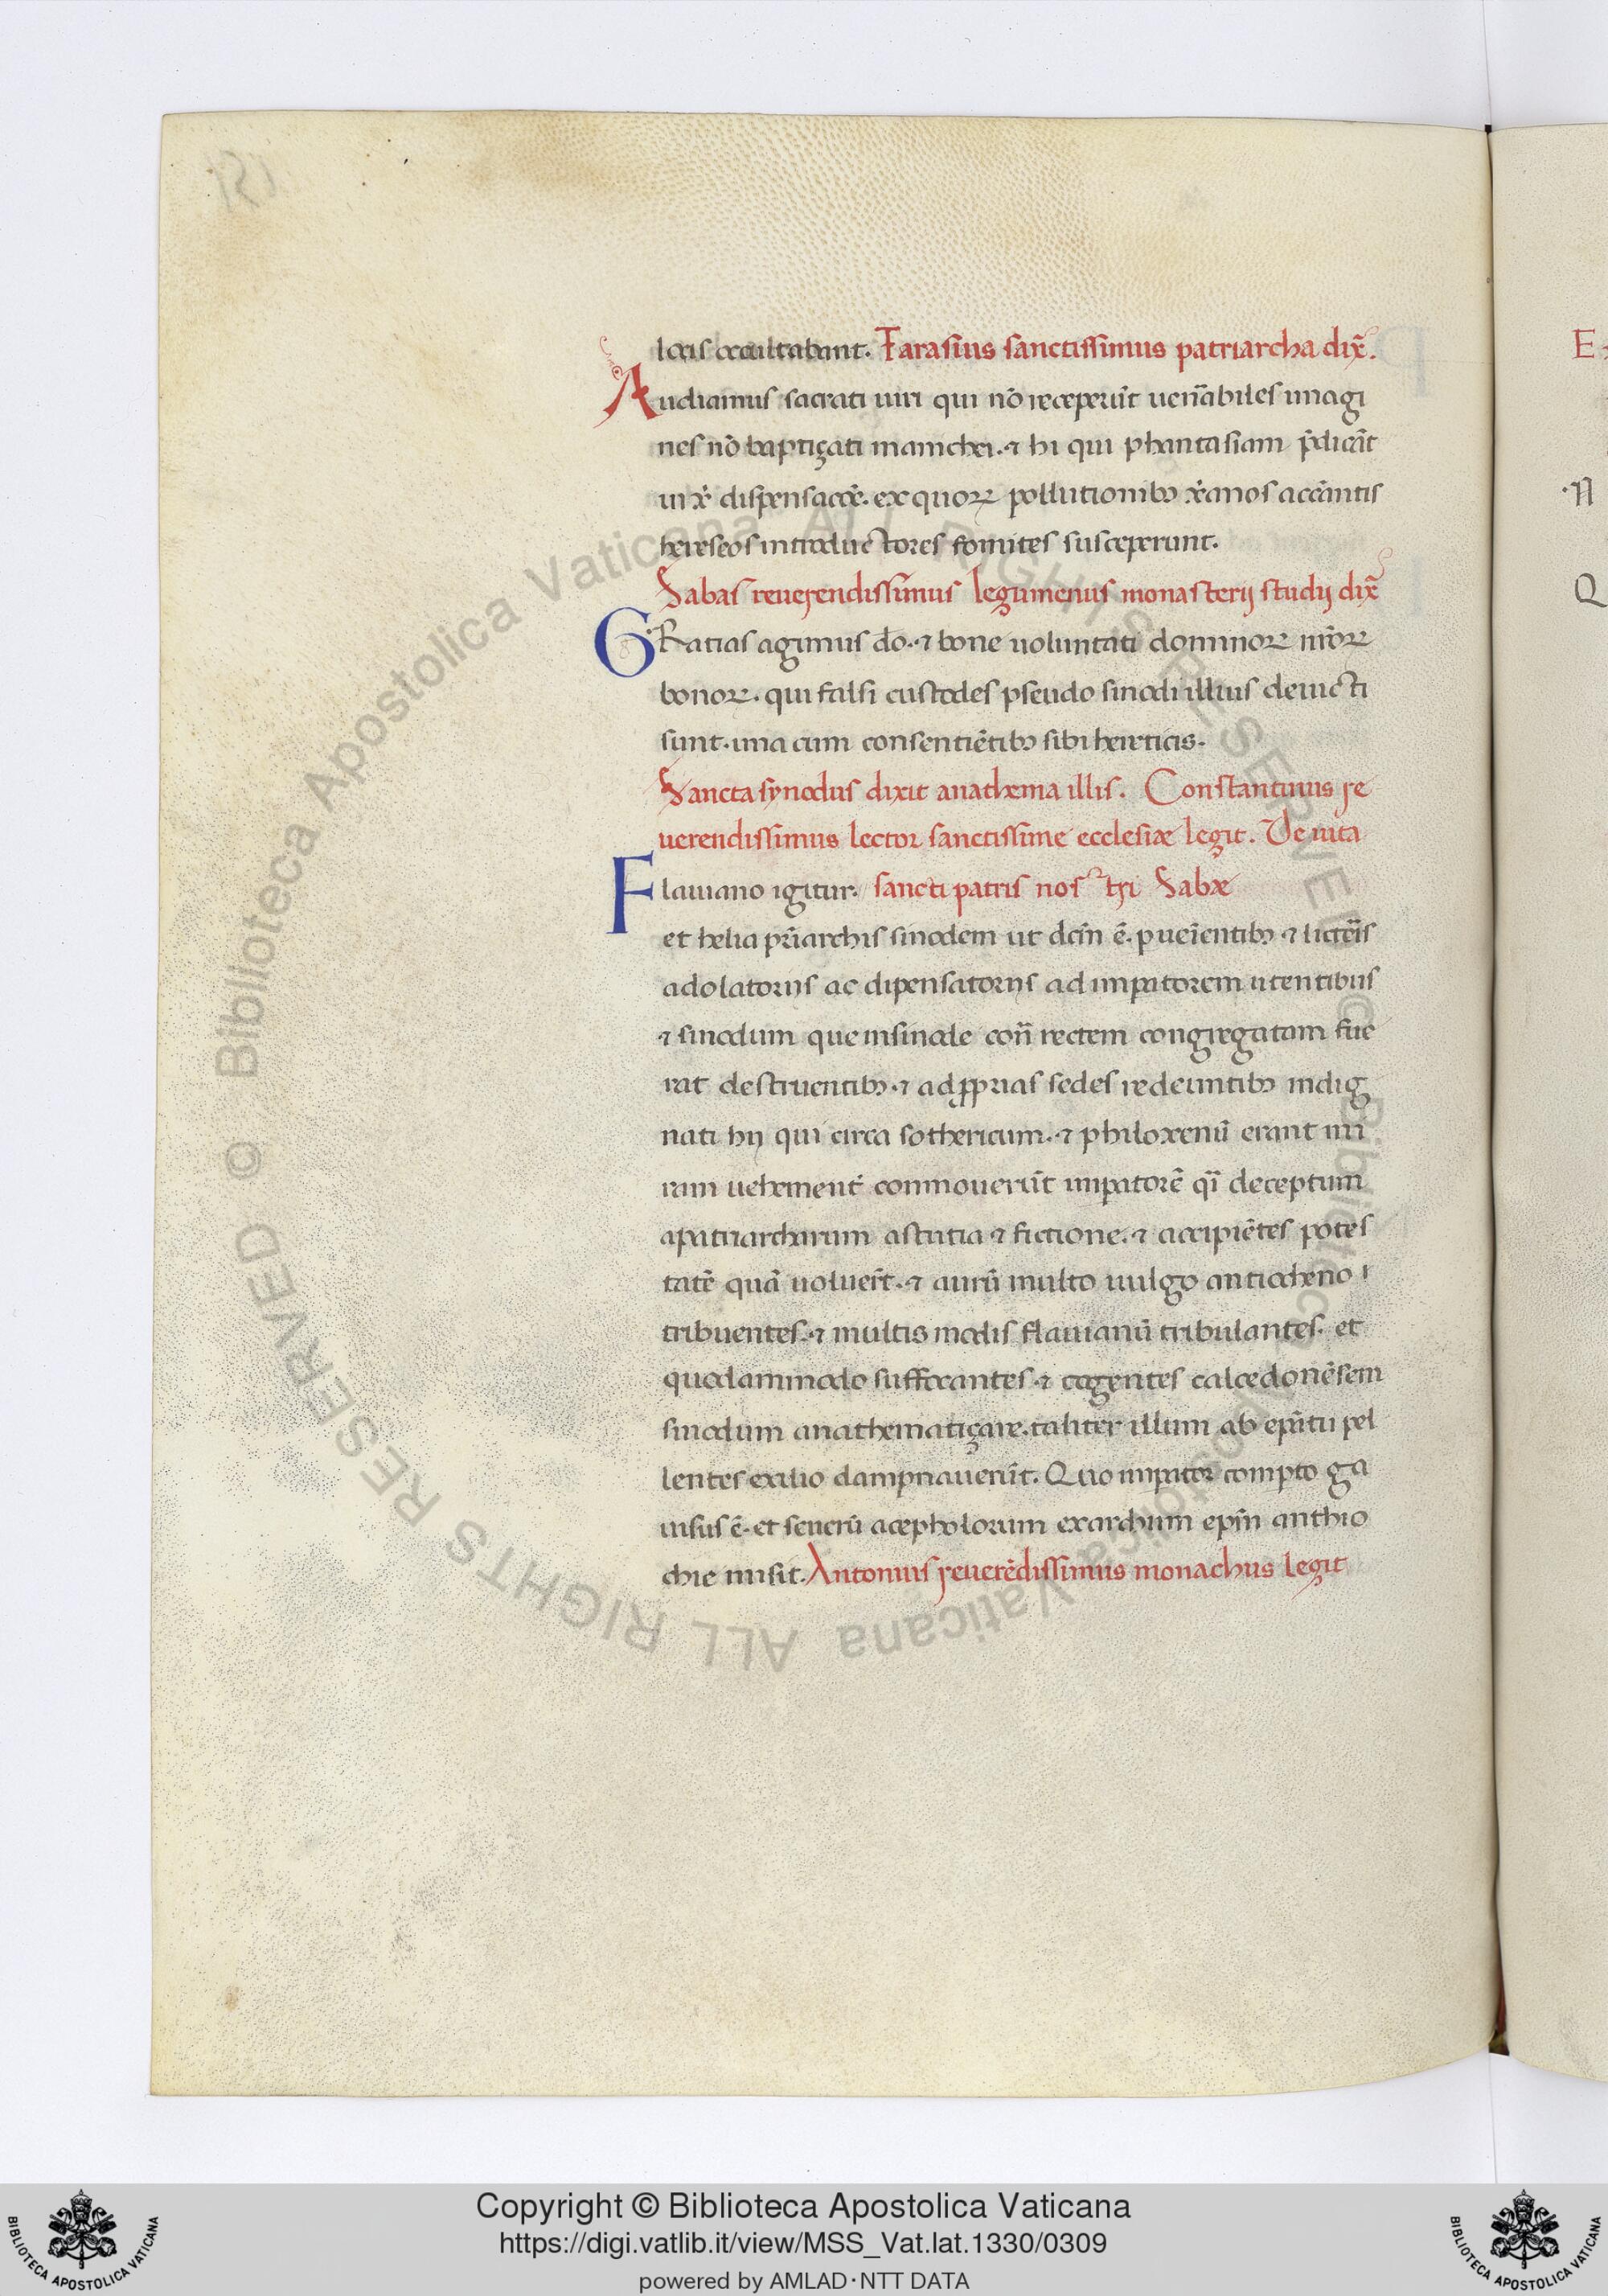 locis occultabant. Tarasius sanctissimus patriarcha dix̃.
Audiamus sacrati uiri qui nõ receperũt uen̄abiles imagi
nes nõ baptiçati manichei. ⁊ hi qui phantasiam p̃dicãt
in xp̃ dispensacõe. ex quoꝝ pollutionibꝫ xp̃ianos accãntis
hereseos introductores fomites susceperunt.
Sabas reuerendissimus legumenus monasterij studij dix̃
GRatias agimus dō. ⁊ bone uoluntati dominoꝝ nr̃oꝝ
bonoꝝ. qui falsi custodes pseudo sinodi illius deuicti
sunt. una cum consentiẽtibꝫ sibi hereticis.
Sancta synodus dixit anathema illis. Constantinus re
uerendissimus lector sanctissime ecclesiæ legit. De uita
Flauiano igitur. sancti patris nostri Sabæ
et helia pr̃iarchis sinodem ut dc̃m ẽ. pueĩentibꝫ ⁊ licter̃is
adolatoriis ac dipensatoriis ad impatorem utentibus
⁊ sinodum que insinode con̄ rectem congregatam fue
rat destruentibꝫ. ⁊ ad ꝓprias sedes redeuntibꝫ indig
nati hij qui circa sothericum. ⁊ philoxenũ erant in
iram uehement̃ commouerũt impatorẽ qĩ deceptum
apatriarcharum astutia ⁊ fictione. ⁊ accipiẽtes potes
tatẽ quã uoluer̃t. ⁊ aurũ multo uulgo antiocheno
tribuentes. ⁊ multis modis flauianũ tribulantes. et
quodammodo suffocantes ⁊ cogentes calcedonẽsem
sinodum anathematiçare. taliter illum ab ep̃atu pel
lentes exilio dampnauerũt. Quo impator compto ga
uisus ẽ. et seuerũ acepholorum exarchum epm̃ anthio
chie misit. Antonius reuerẽdissimus monachus legit
E
N
Q
Copyright © Biblioteca Apostolica Vaticana
https://digi.vatlib.it/view/MSS_Vat.lat.1330/0309
powered by AMLAD·NTT DATA